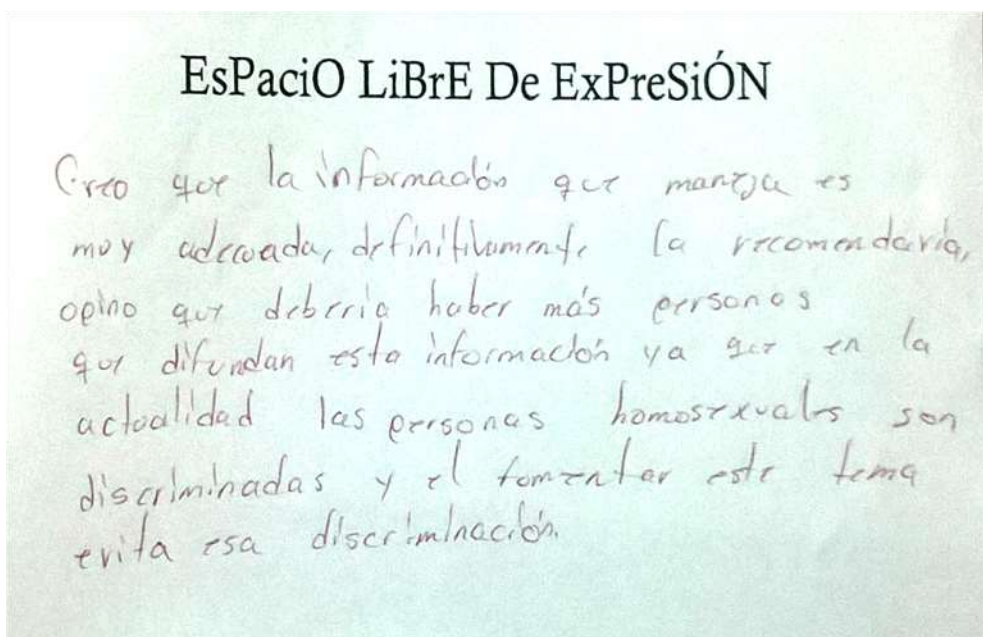 EsPaciO LiBrE De ExPreSiÓN
Creo que la información que maneja es
muy adecuada, definitivamente la recomendaría,
opino que debería haber más personas
que difundan esta información ya que en la
actualidad las personas homosexuales son
discriminadas y el fomentar este tema
evita esa discriminación.